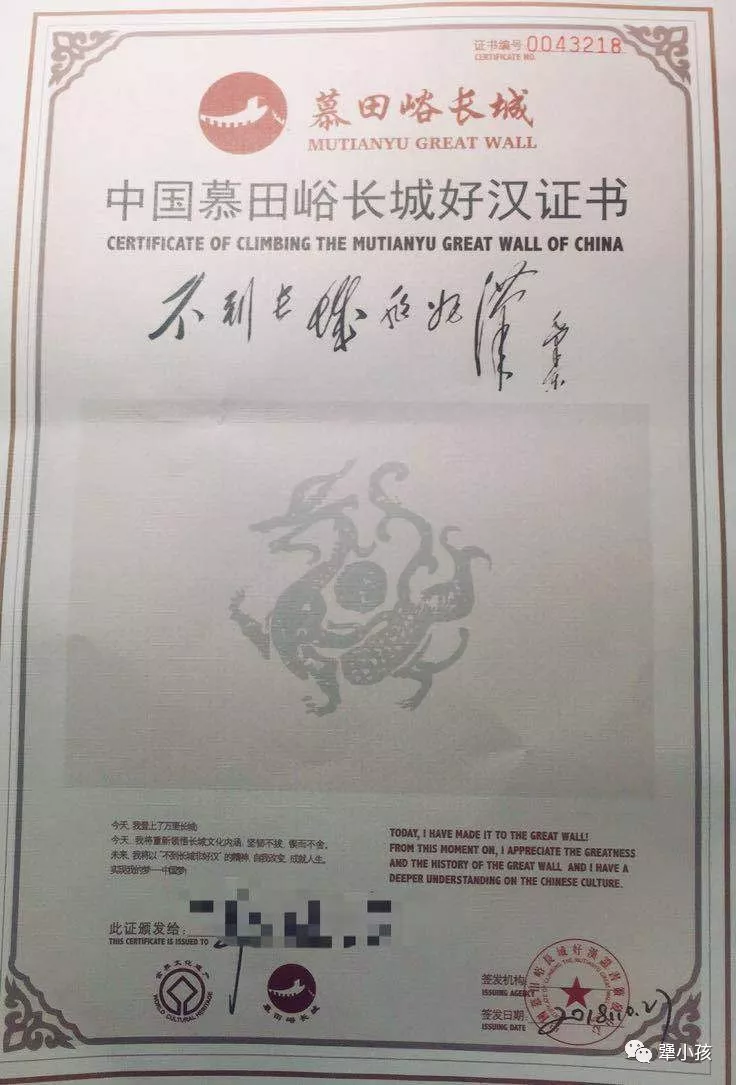 证书编号 0043218
CERTIFICATE NO.
慕田峪长城
MUTIANYU GREAT WALL
中国慕田峪长城好汉证书
CERTIFICATE OF CLIMBING THE MUTIANYU GREAT WALL OF CHINA
不到长城非好汉
今天，我登上了万里长城!
今天，我将重新领悟长城文化内涵，坚韧不拔，锲而不舍。
未来，我将以“不到长城非好汉”的精神，自我改变，成就人生。
实现我的梦一中国梦!
TODAY, I HAVE MADE IT TO THE GREAT WALL!
FROM THIS MOMENT ON, I APPRECIATE THE GREATNESS
AND THE HISTORY OF THE GREAT WALL AND I HAVE A
DEEPER UNDERSTANDING ON THE CHINESE CULTURE.
此证颁发给:
THIS CERTIFICATE IS ISSUED TO
世界文化遗产
WORLD CULTURAL HERITAGE
慕田峪长城
签发机构:
ISSUING AGENCY
签发日期:
ISSUING DATE
2018.10.27
犟小孩